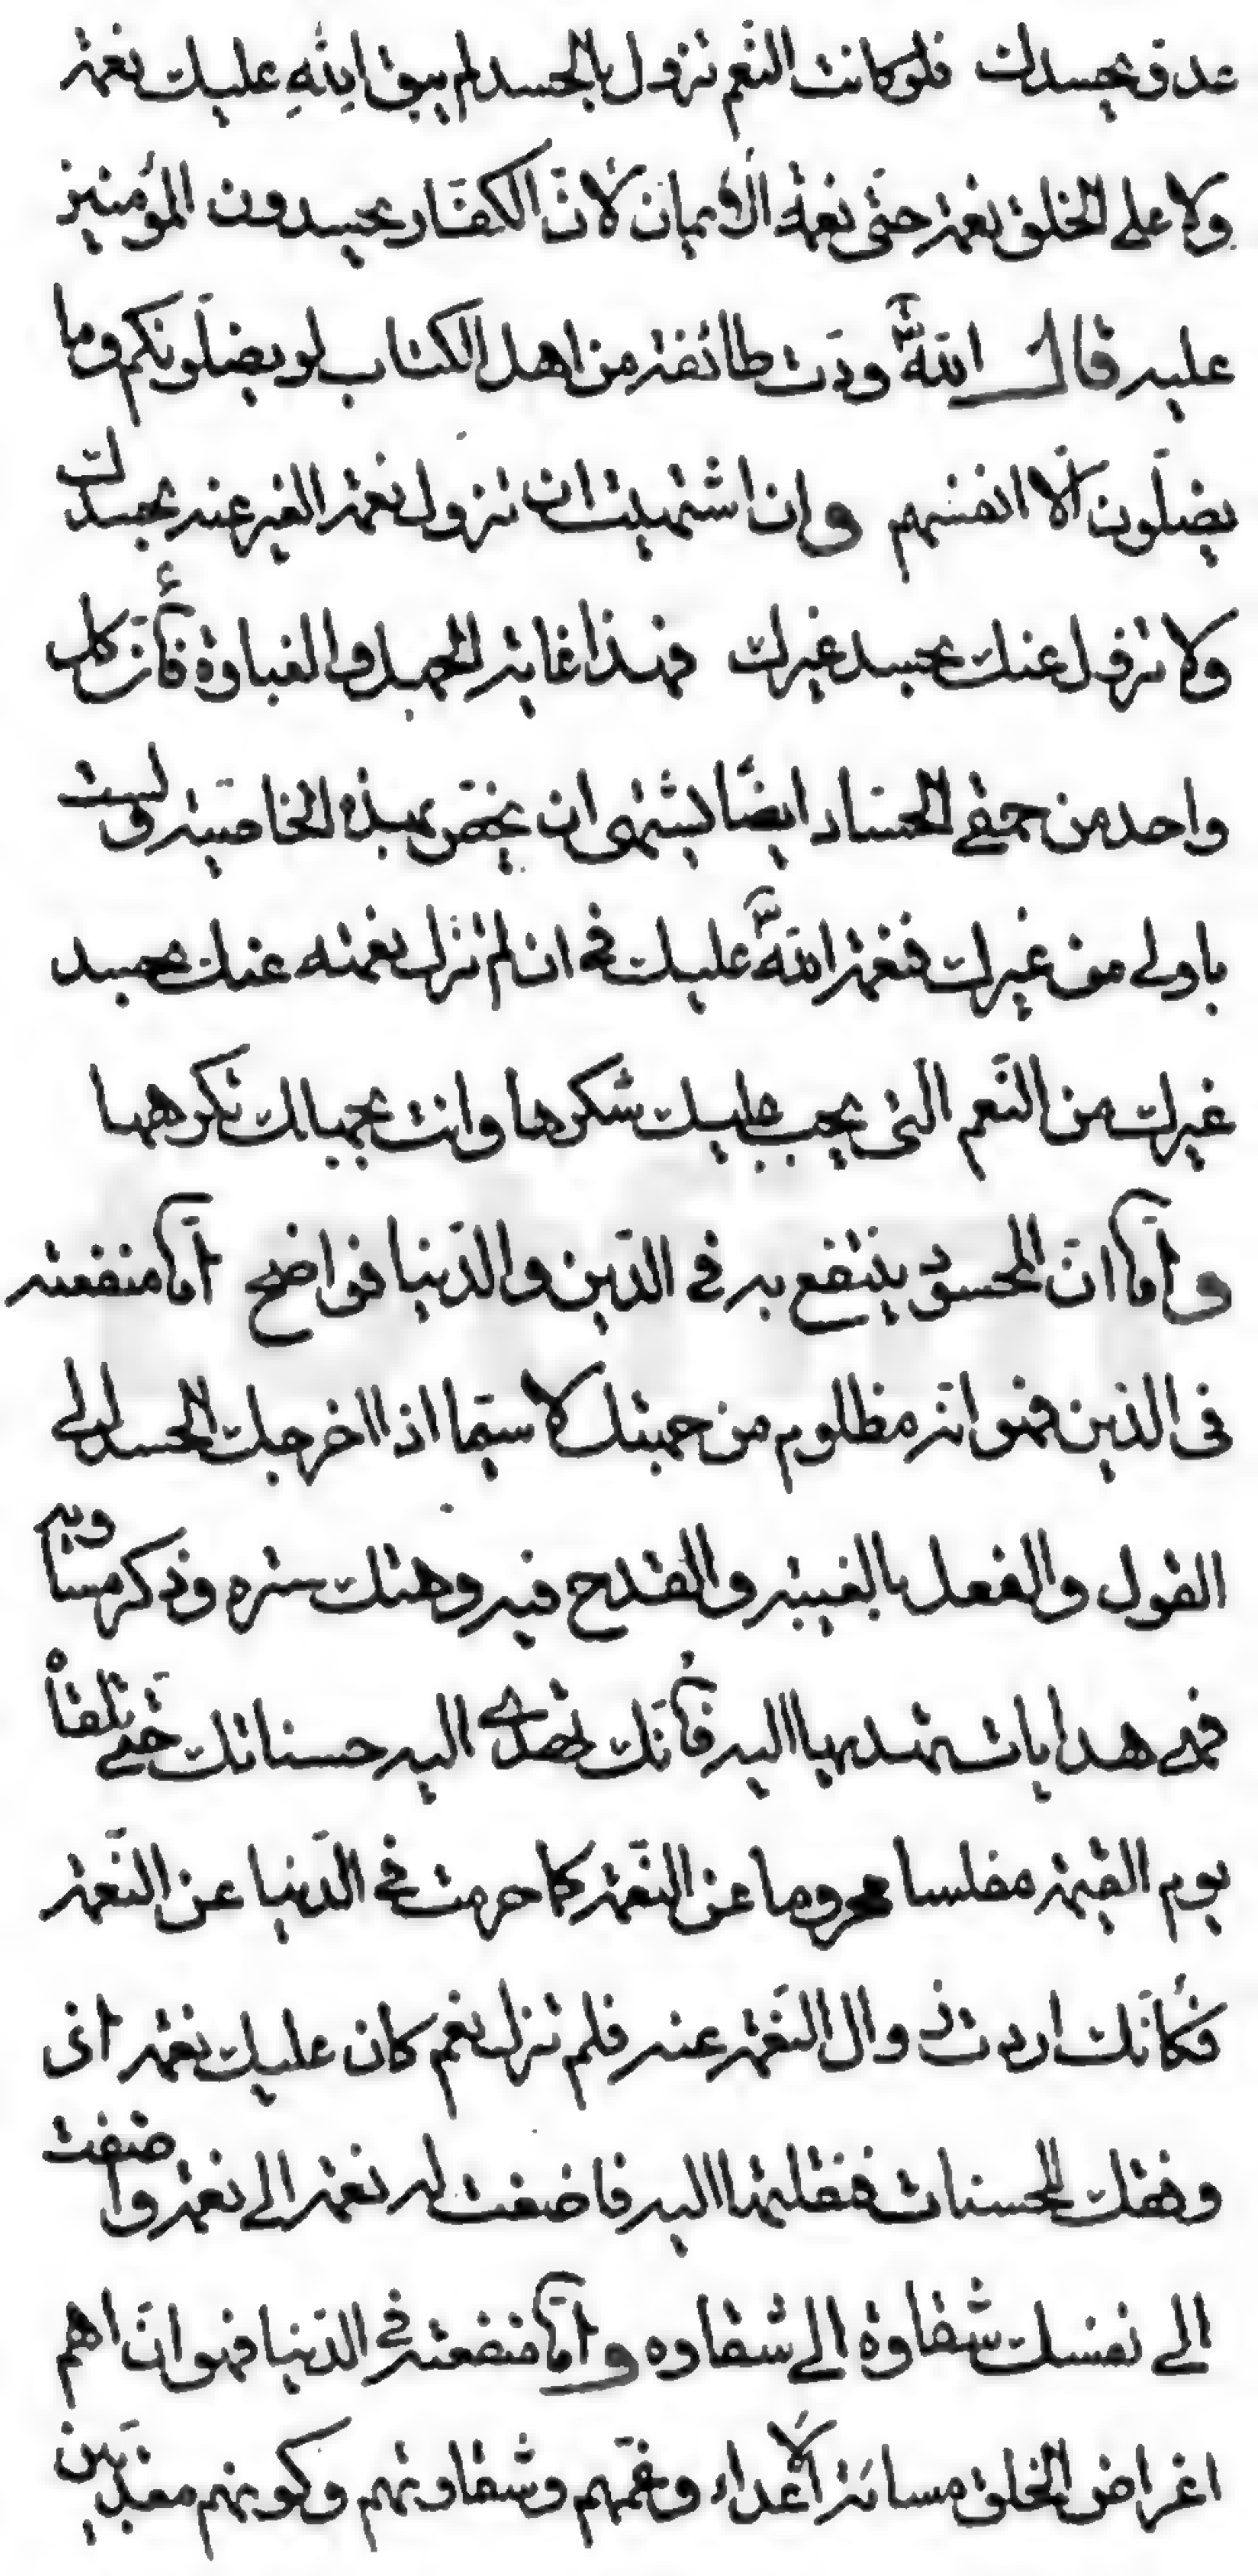 عدو يحسدك فلو كانت النعم تزول بالحسد لم يبق لله عليك نعمة
ولا على الخلق نعمة حتى نعمة الايمان لانّ الكفّار يحسدون المؤمنين
عليه قال اللّه ودّت طائفة من اهل الكتاب لو يضلّونكم وما
يضلّون الّا انفسهم وان اشتهيت ان تزول نعمة الغير عنه بحسدك
ولا تزول عنك بحسد غيرك فهذا غاية الجهل والغباوة فأنّ كل
واحد من حمقى الحسّاد ايضًا يشتهى ان يختصّ بهذه الخاصّية ولست
باولى من غيرك فنعمة اللّه عليك في ان لم تزل نعمته عنك بحسد
غيرك من النّعم التى يجب عليك شكرها وانت بجهالك تكرهها
وامّا انّ المحسود ينتفع به في الدّين والدّنيا فواضح امّا منفعته
فى الدّين فهو انّه مظلوم من جهتك لا سيّما اذا اخرجك الحسد الى
القول والفعل بالغيبة والقدح فيه وهتك ستره وذكر مساويه
فهى هدايات تهديها اليه فأنّك تهدى اليه حسناتك حتّى تلقاْ
يوم القيمة مفلسا محروما عن النّعمة كما حرمت في الدّنيا عن النّعمة
فكأنّك اردت زوال النّعمة عنه فلم تزل نعم كان عليك نعمة اذ
وفقك للحسنات فنقلتها اليه فاضفت له نعمة الى نعمة واضفت
الى نفسك شقاوة الى شقاوه وامّا منفعته في الدّنيا فهو انّ اهم
اغراض الخلق مسائة الأعداء وغمّهم وشقاوتهم وكونهم معذّبين